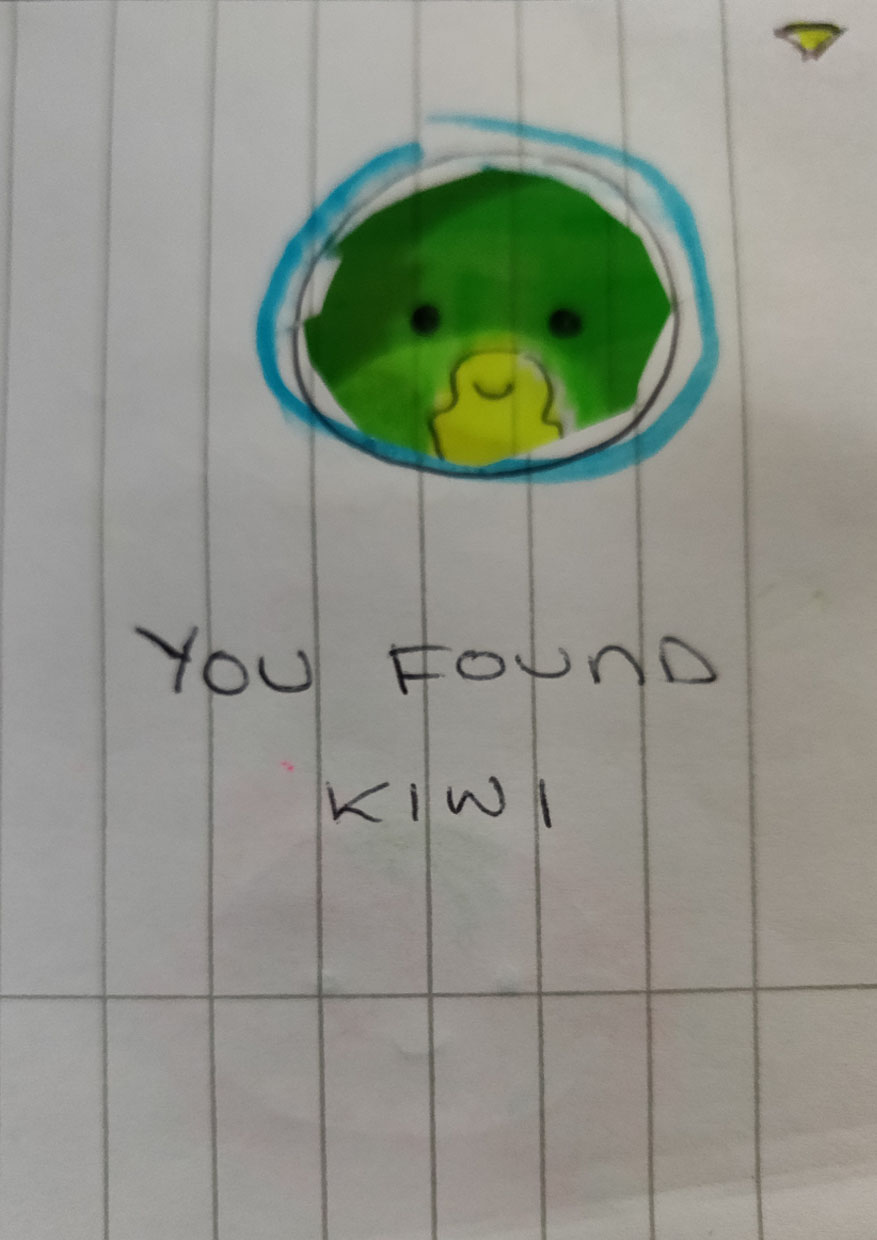 YOU FOUND
KIWI